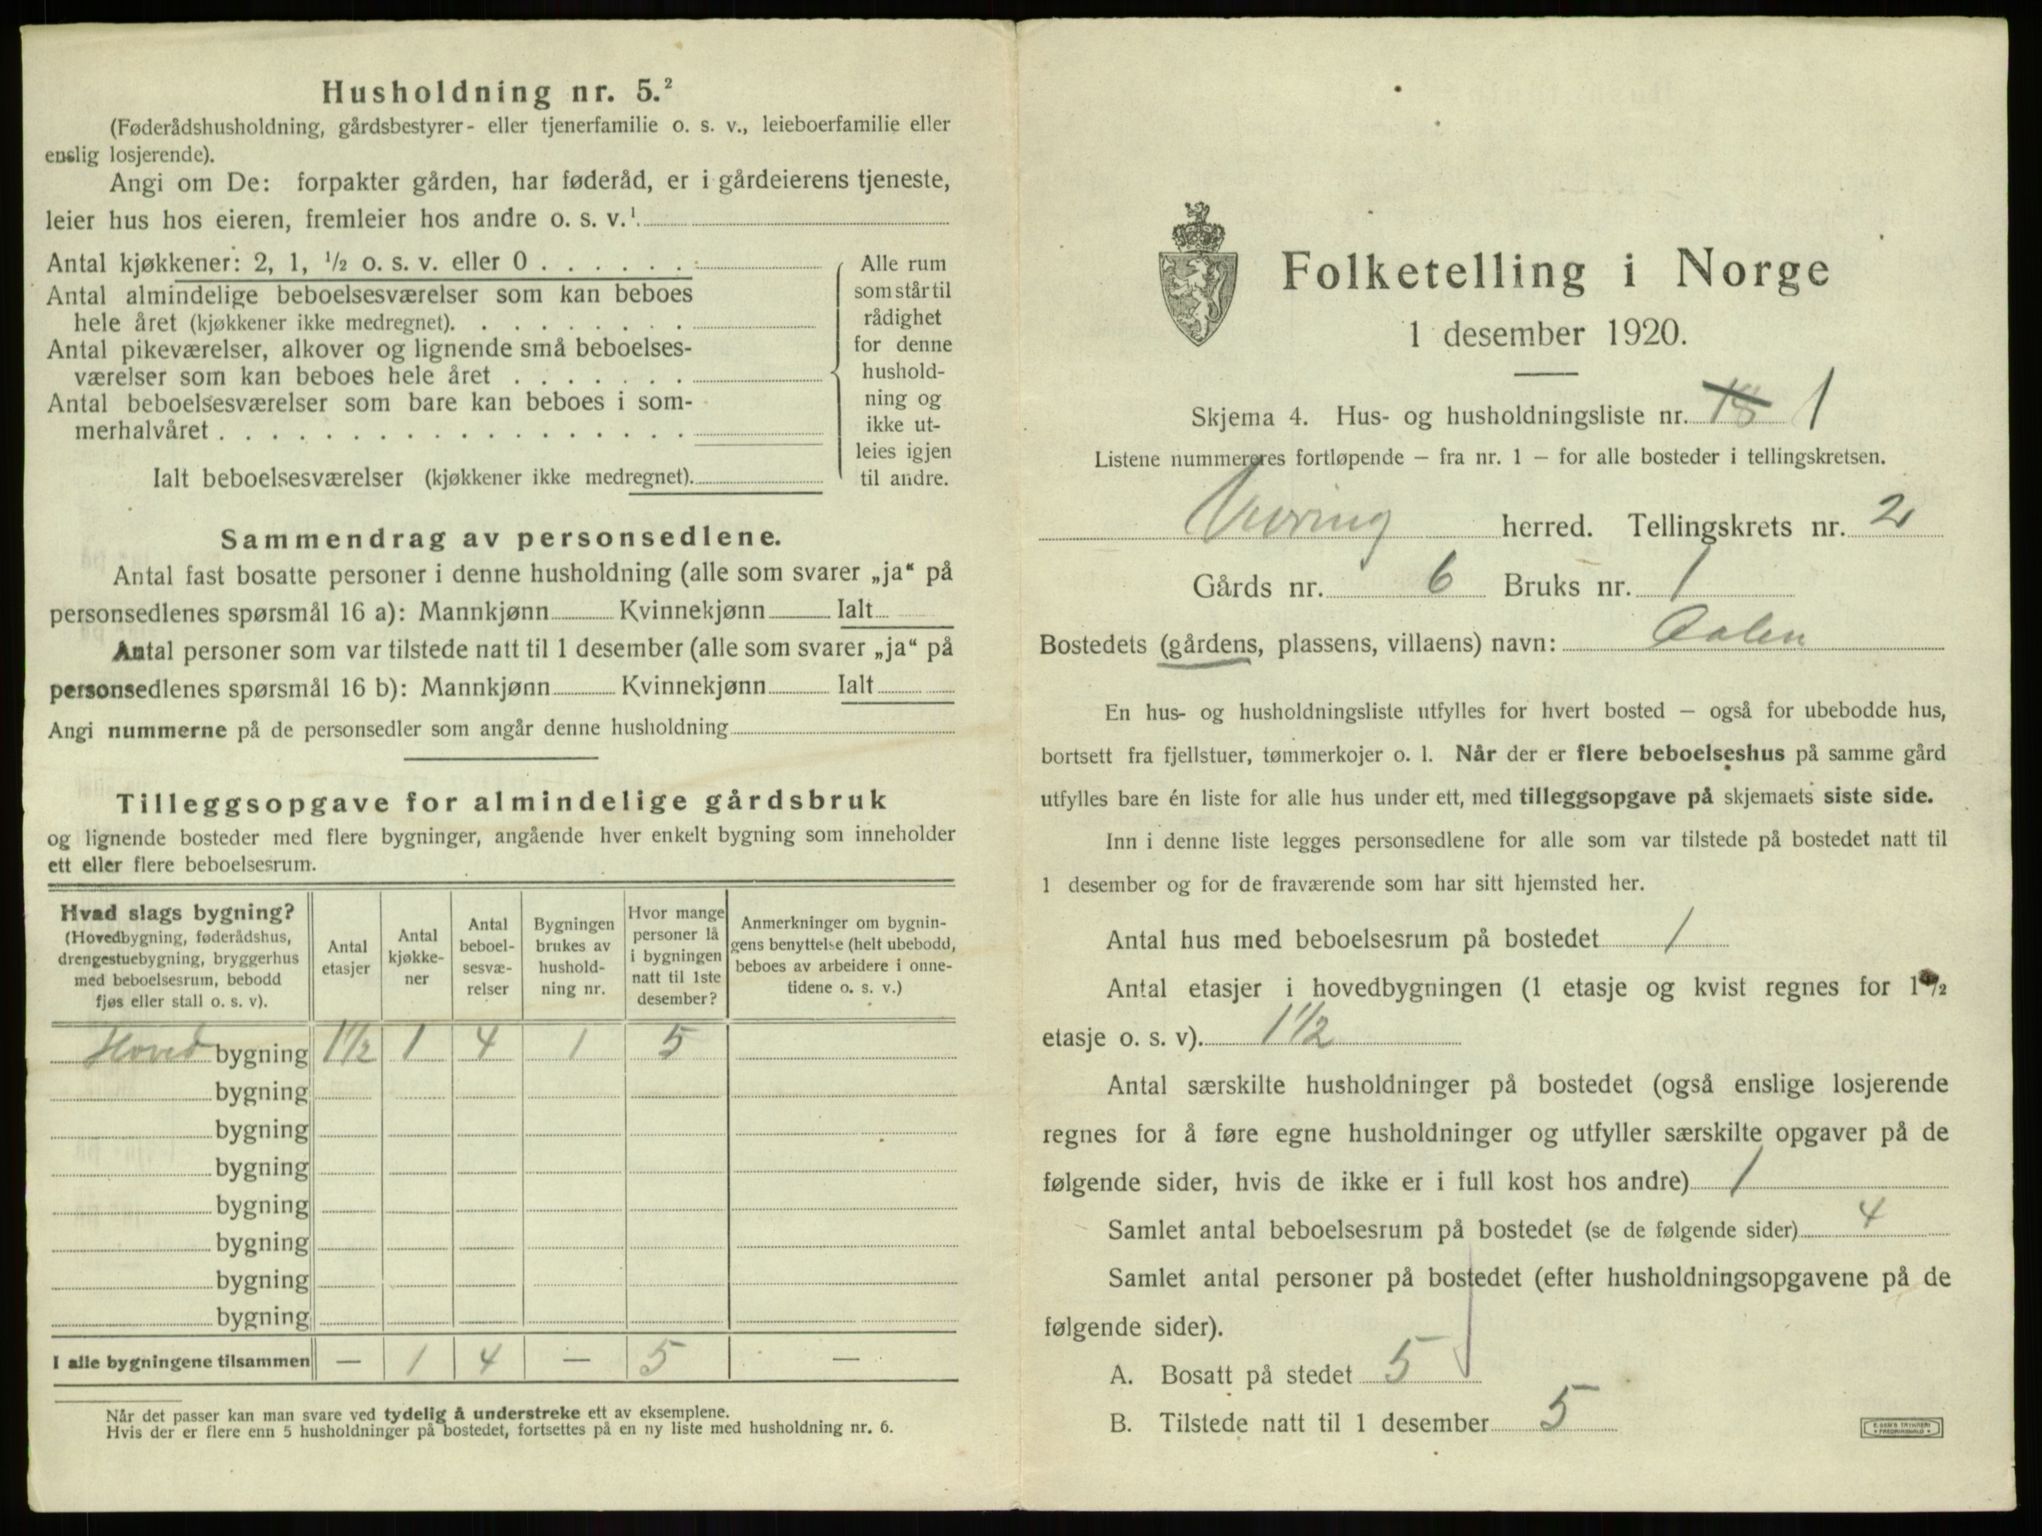 Husholdning nr. 5.²
(Føderådshusholdning, gårdsbestyrer- eller tjenerfamilie o. s. v., leieboerfamilie eller
enslig losjerende).
Angi om De: forpakter gården, har føderåd, er i gårdeierens tjeneste,
leier hus hos eieren, fremleier hos andre o. s. v.¹
Antal kjøkkener: 2, 1, ½ o. s. v. eller 0
Antal almindelige beboelsesværelser som kan beboes
hele året (kjøkkener ikke medregnet).
Antal pikeværelser, alkover og lignende små beboelses-
værelser som kan beboes hele året
Antal beboelsesværelser som bare kan beboes i som-
merhalvåret
Ialt beboelsesværelser (kjøkkener ikke medregnet).
Alle rum
som står til
rådighet
for denne
hushold-
ning og
ikke ut-
leies igjen
til andre.
Sammendrag av personsedlene.
Antal fast bosatte personer i denne husholdning (alle som svarer „ja“ på
personsedlenes spørsmål 16 a): Mannkjønn Kvinnekjønn Ialt
Antal personer som var tilstede natt til 1 desember (alle som svarer „ja“ på
personsedlenes spørsmål 16 b): Mannkjønn Kvinnekjønn Ialt
Angi nummerne på de personsedler som angår denne husholdning
Tilleggsopgave for almindelige gårdsbruk
og lignende bosteder med flere bygninger, angående hver enkelt bygning som inneholder
ett eller flere beboelsesrum.
Hvad slags bygning?
(Hovedbygning, føderådshus,
drengestuebygning, bryggerhus
med beboelsesrum, bebodd
fjøs eller stall o. s. v).
Antal
etasjer
Antal
kjøkke-
ner
Antal
beboel-
sesvæ-
relser
Bygningen
brukes av
hushold-
ning nr.
Hvor mange
personer lå
i bygningen
natt til 1ste
desember?
Anmerkninger om bygnin-
gens benyttelse (helt ubebodd,
beboes av arbeidere i onne-
tidene o. s. v.)
Hoved bygning 1½ 1 4 1 5
bygning
bygning
bygning
bygning
bygning
bygning
bygning
I alle bygningene tilsammen — 1 4 — 5 —
Når det passer kan man svare ved tydelig å understreke ett av eksemplene.
Hvis der er flere enn 5 husholdninger på bostedet, fortsettes på en ny liste med husholdning nr. 6.
Folketelling i Norge
1 desember 1920.
Skjema 4. Hus- og husholdningsliste nr. 1
Listene nummereres fortløpende — fra nr. 1 — for alle bosteder i tellingskretsen.
herred. Tellingskrets nr. 2
Gårds nr. 6 Bruks nr. 1
Bostedets (gårdens, plassens, villaens) navn: Aalen
En hus- og husholdningsliste utfylles for hvert bosted — også for ubebodde hus,
bortsett fra fjellstuer, tømmerkojer o. l. Når der er flere beboelseshus på samme gård
utfylles bare én liste for alle hus under ett, med tilleggsopgave på skjemaets siste side.
Inn i denne liste legges personsedlene for alle som var tilstede på bostedet natt til
1 desember og for de fraværende som har sitt hjemsted her.
Antal hus med beboelsesrum på bostedet 1
Antal etasjer i hovedbygningen (1 etasje og kvist regnes for 1½
etasje o. s. v). 1½
Antal særskilte husholdninger på bostedet (også enslige losjerende
regnes for å føre egne husholdninger og utfyller særskilte opgaver på de
følgende sider, hvis de ikke er i full kost hos andre) 1
Samlet antal beboelsesrum på bostedet (se de følgende sider) 4
Samlet antal personer på bostedet (efter husholdningsopgavene på de
følgende sider).
A. Bosatt på stedet 5
B. Tilstede natt til 1 desember 5